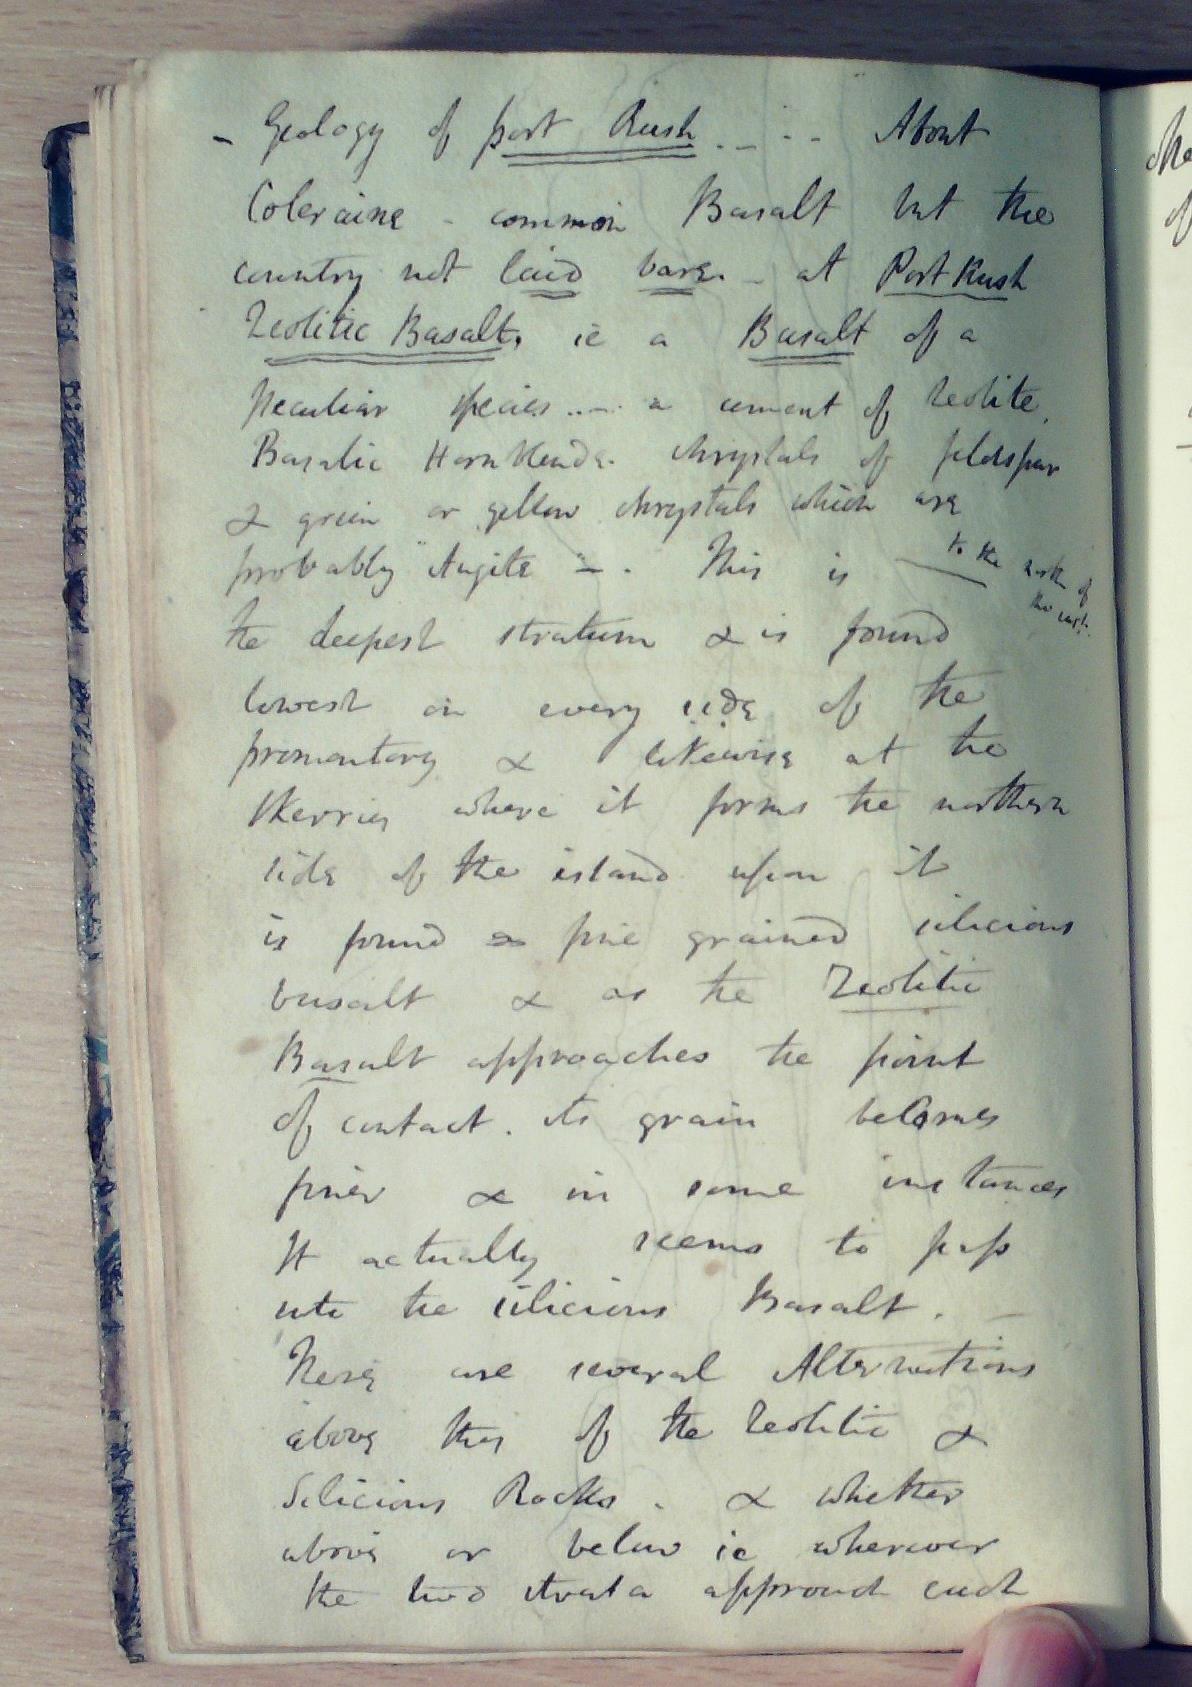 - Geology of port Rush _ _ - - About
Coleraine - common Basalt but the
country not laid bare. - at Port Rush
Zeolitic Basalt, ie a Basalt of a
peculiar species ..-.. a cement of Zeolite,
Basaltic Hornblende. chrystals of feldspar
& green or yellow chrystals which are
probably "Augite" -. This is to the north of
the east.
the deepest stratum & is found
lowest on every side of the
promontory & likewise at the
Skerries where it forms the northern
side of the island upon it
is found fine grained silicious
basalt & as the Zeolitic
Basalt approaches the point
of contact. its grain becomes
finer & in some instances
It actually seems to pass
into the silicious Basalt. -
There are several Alternations
above this of the Zeolitic &
Silicious Rocks. & whether
above or below ie wherever
the two strata approach each